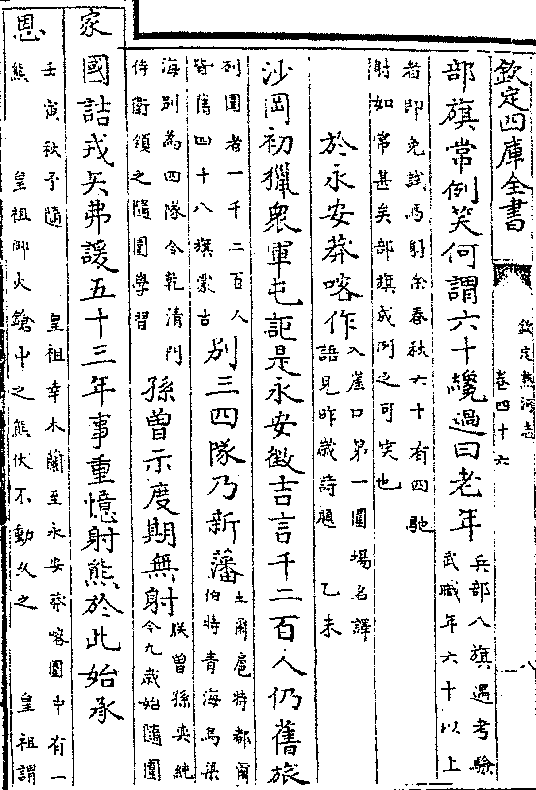 欽定四庫全書
欽定熱河志
卷四十六
八
部旗常例笑何謂六十纔過曰老年
兵部八旗遇考驗
武職年六十以上
者即免試馬射余春秋六十有四馳
射如常甚矣部旗成例之可笑也
於永安莽喀作
入崖口第一圍場名譯
語見昨歲詩題 乙未
沙岡初獵衆軍屯詎是永安徵吉言千二百人仍舊旅
列圍者一千二百人
皆舊四十八旗蒙古
別三四隊乃新藩
土爾扈特都爾
伯特青海烏梁
海別為四隊令乾清門
侍衛領之隨圍學習
孫曾示度期無射
朕曾孫奕純
今九歲始隨圍
家國詰戎矢弗諼五十三年事重憶射熊於此始承
恩
壬寅秋予隨 皇祖幸木蘭至永安莽喀圍中有一
熊 皇祖御火鎗中之熊伏不動久之 皇祖謂